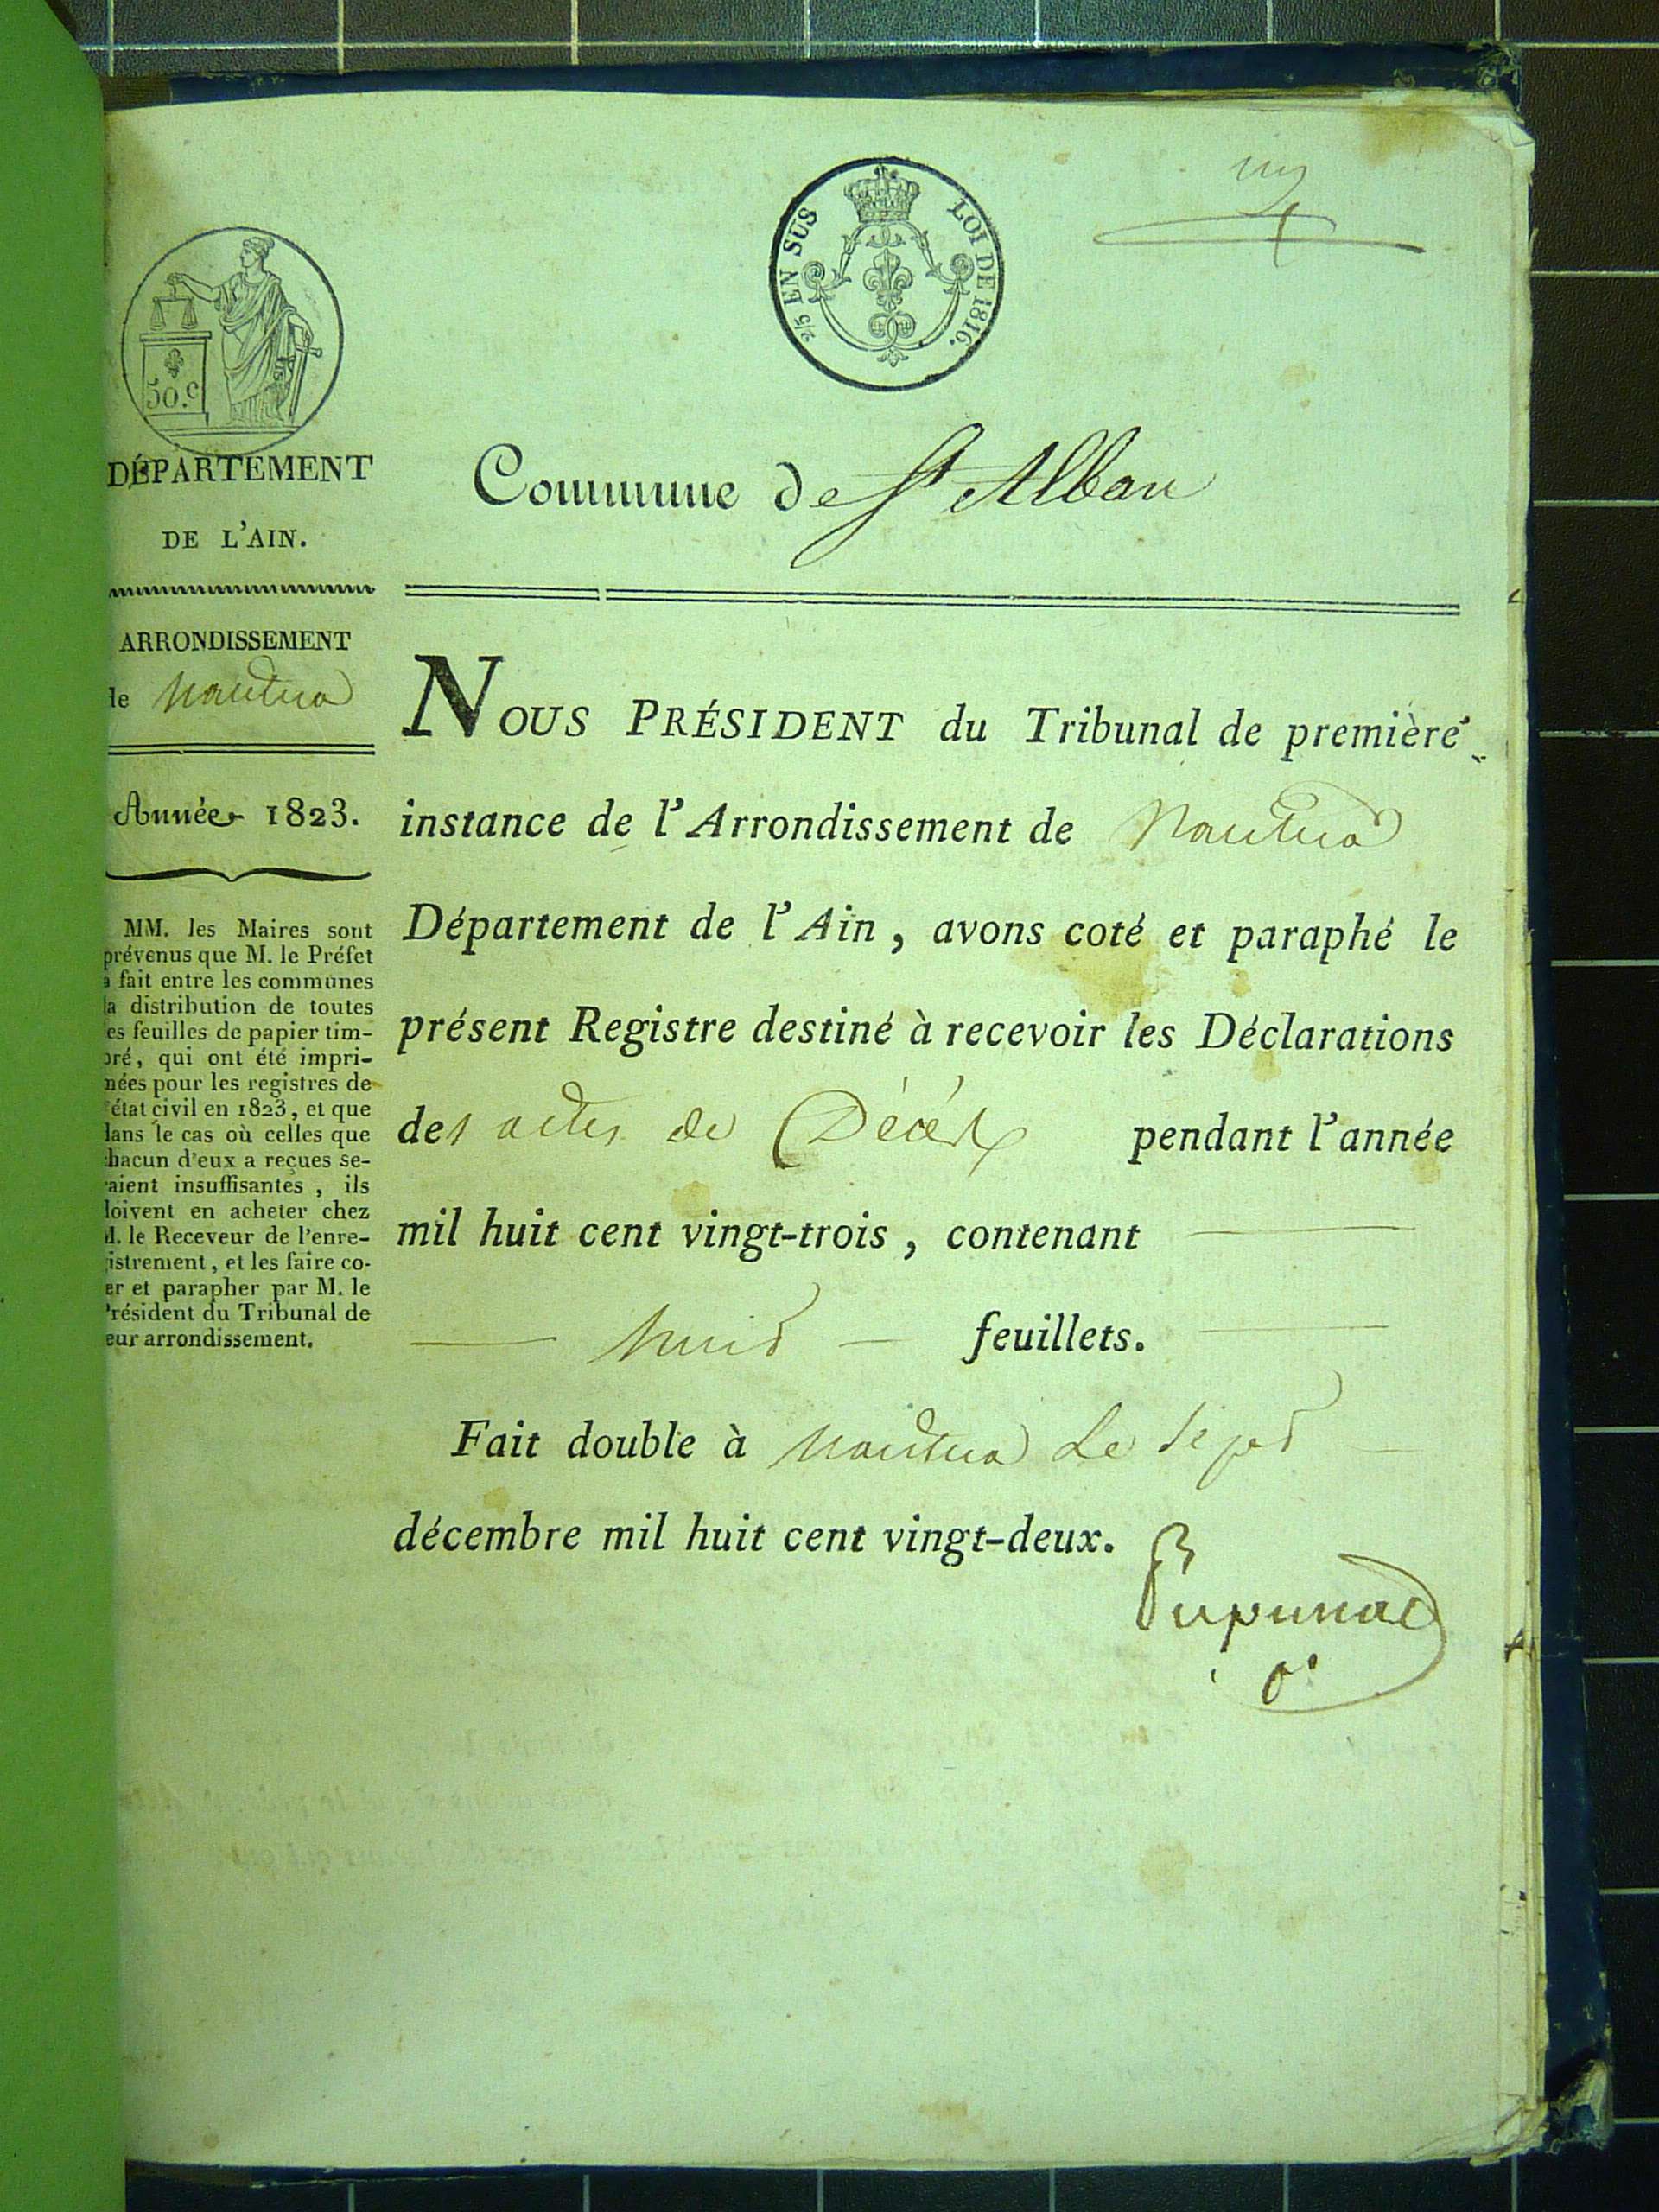 2/5 EN SUS
LOI DE 1816.
50.c
DÉPARTEMENT
DE L'AIN.
ARRONDISSEMENT
de Nantua
Année 1823.
MM. les Maires sont
prévenus que M. le Préfet
a fait entre les communes
la distribution de toutes
es feuilles de papier tim-
bré, qui ont été impri-
mées pour les registres de
l'état civil en 1823, et que
dans le cas où celles que
chacun d'eux a reçues se-
raient insuffisantes, ils
doivent en acheter chez
M. le Receveur de l'enre-
gistrement, et les faire co-
er et parapher par M. le
Président du Tribunal de
eur arrondissement.
Commune de St Alban
NOUS PRÉSIDENT du Tribunal de première
instance de l'Arrondissement de Nantua
Département de l'Ain, avons coté et paraphé le
présent Registre destiné à recevoir les Déclarations
des actes de Décès pendant l'année
mil huit cent vingt-trois, contenant
huit feuillets.
Fait double à Nantua le sept
décembre mil huit cent vingt-deux.